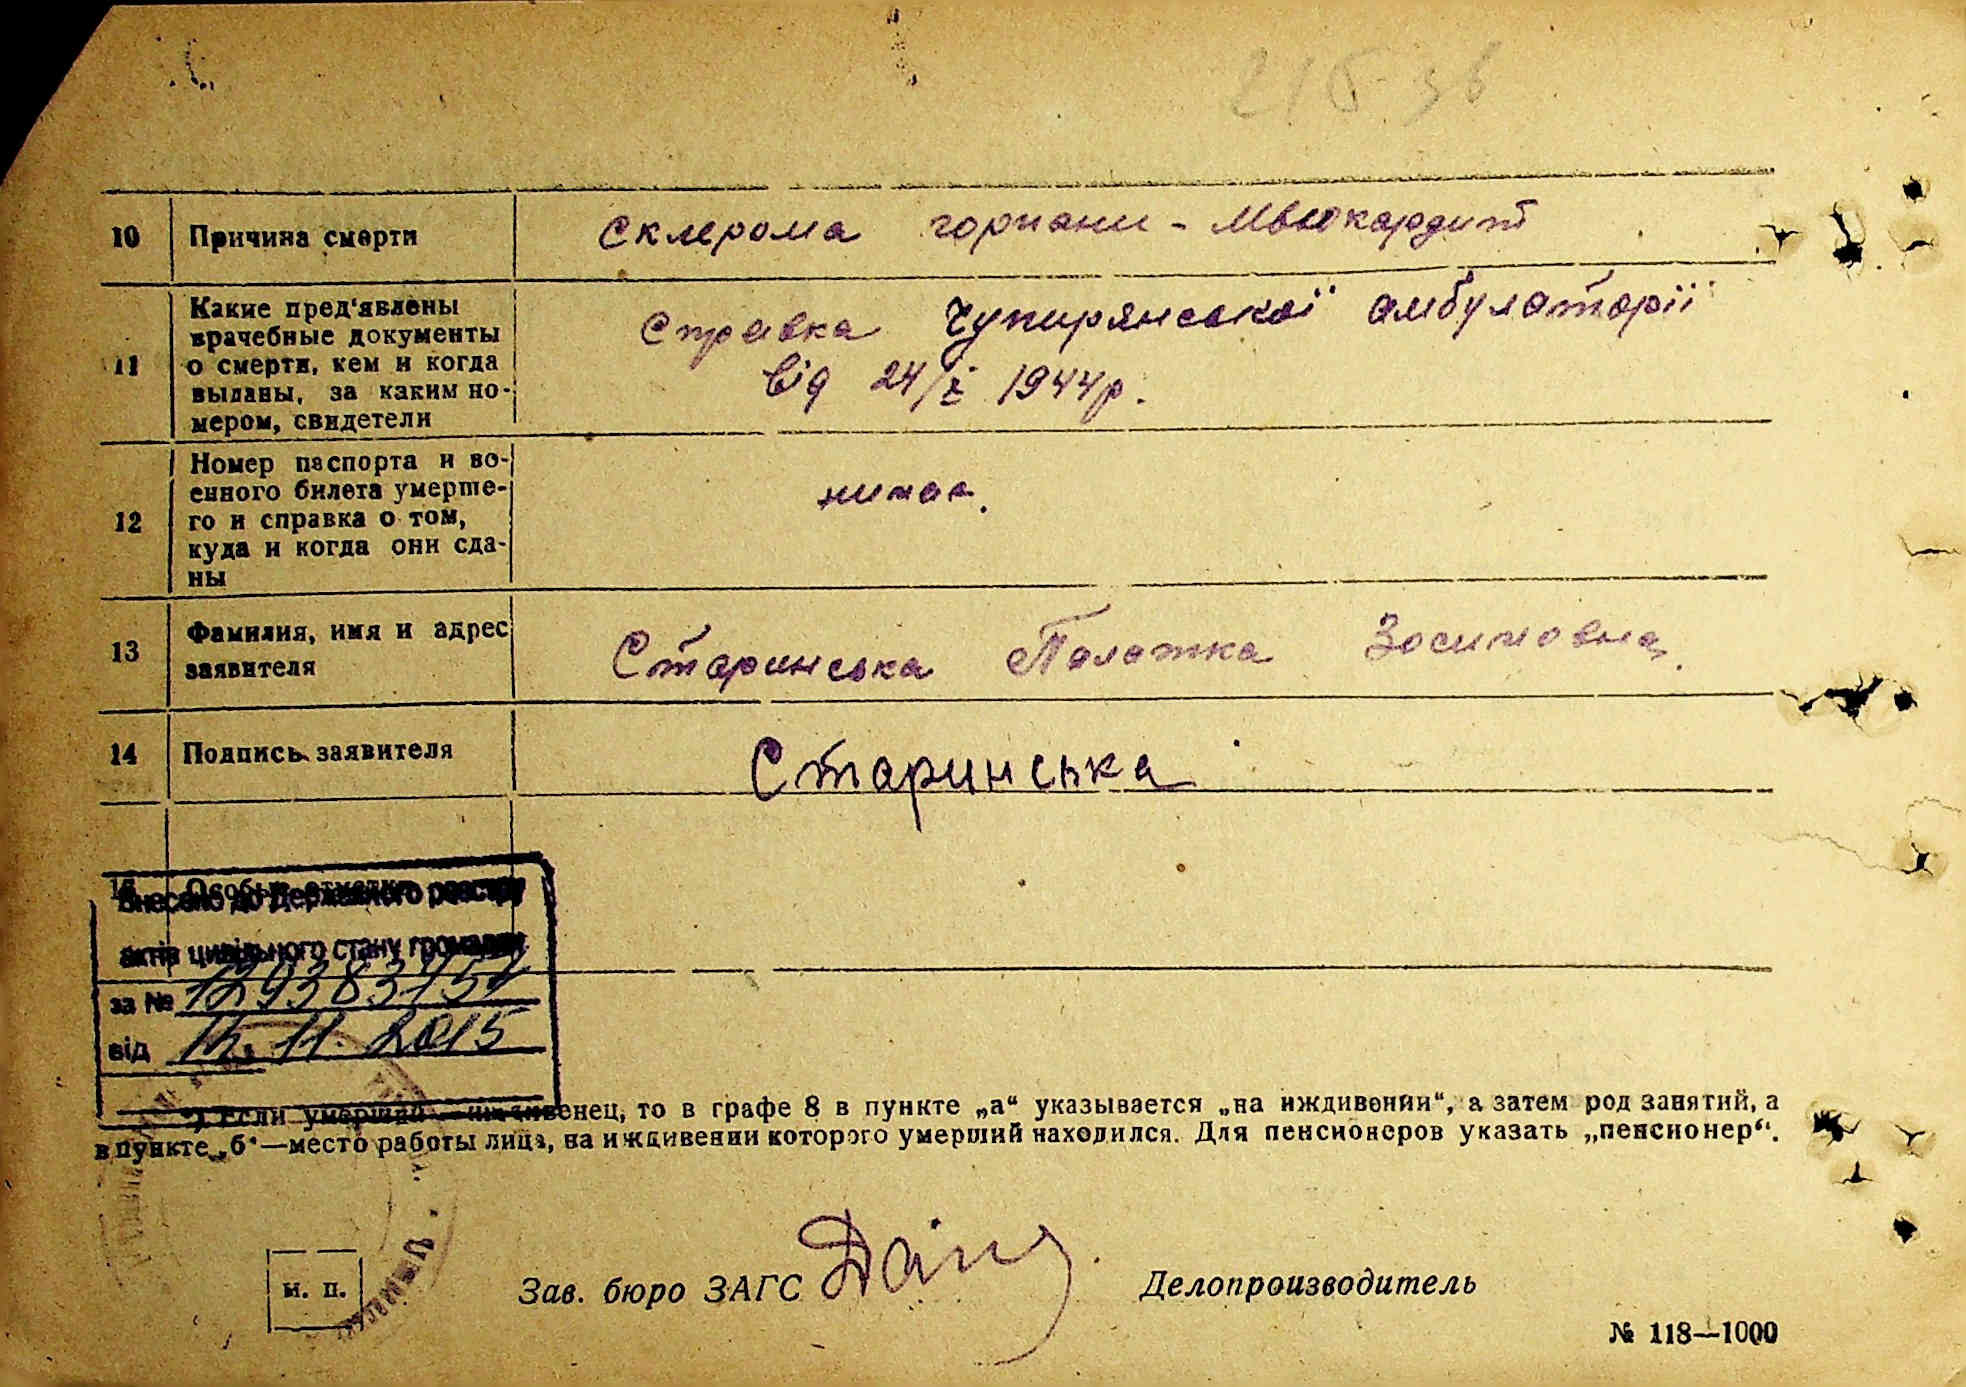 216-36
10 Причина смерти Склерома горпани - Мвіокардит
11 Какие пред'явлены
врачебные документы
о смерти, кем и когда
выданы, за каким но-
мером, свидетели
Справка Чупирянської амбулаторії
від 24/X 1944р.
12 Номер паспорта и во-
енного билета умерше-
го и справка о том,
куда и когда они сда-
ны
нимає.
13 Фамилия, имя и адрес
заявителя
Старинська Палажка Зосимовна.
14 Подпись заявителя Старинська
15 Особые отметки
Внесено до Державного реєстру
актів цивільного стану громадян
за №
від 12.11.2015
*) Если умерший иждивенец, то в графе 8 в пункте „а“ указывается „на иждивении“, а затем род занятий, а
в пункте „б“—место работы лица, на иждивении которого умерший находился. Для пенсионеров указать „пенсионер“.
м. п.
Зав. бюро ЗАГС
Делопроизводитель
№ 118—1000